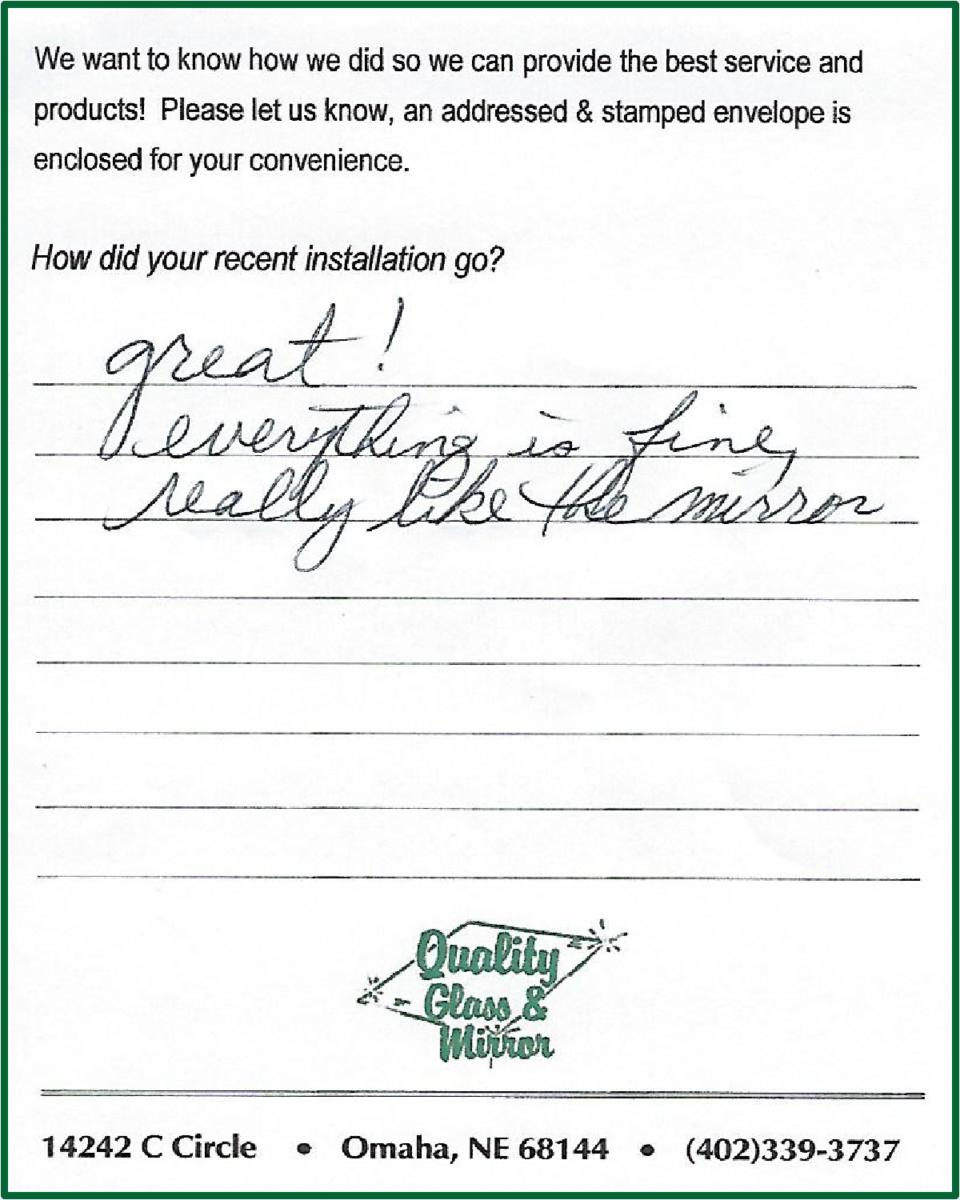 We want to know how we did so we can provide the best service and
products!  Please let us know, an addressed & stamped envelope is
enclosed for your convenience.
How did your recent installation go?
great!
everything is fine,
really like the mirror
Quality
Glass &
Mirror
14242 C Circle • Omaha, NE 68144 • (402)339-3737